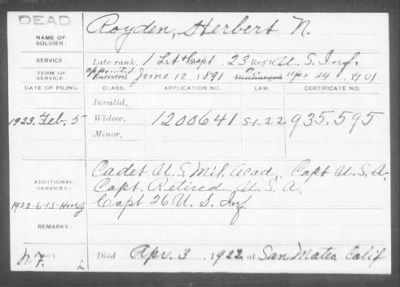 DEAD
NAME OF SOLDIER: Royden, Herbert N.
SERVICE: Late rank, 1 Lt & Capt, 23 Reg't U.S. Inf.
TERM OF SERVICE: appointed June 12, 1891, Apr 24, 1901
DATE OF FILING. CLASS. APPLICATION NO. LAW. CERTIFICATE NO.
Invalid,
1923 Feb. 5 Widow, 1200641 S1.22 935.595
Minor,
ADDITIONAL SERVICES: Cadet U.S. Mil. Acad., Capt U.S.A.
Capt. Retired U.S.A.
Capt 26 U.S. Inf
REMARKS:
Died Apr. 3 1922, at San Mateo Calif